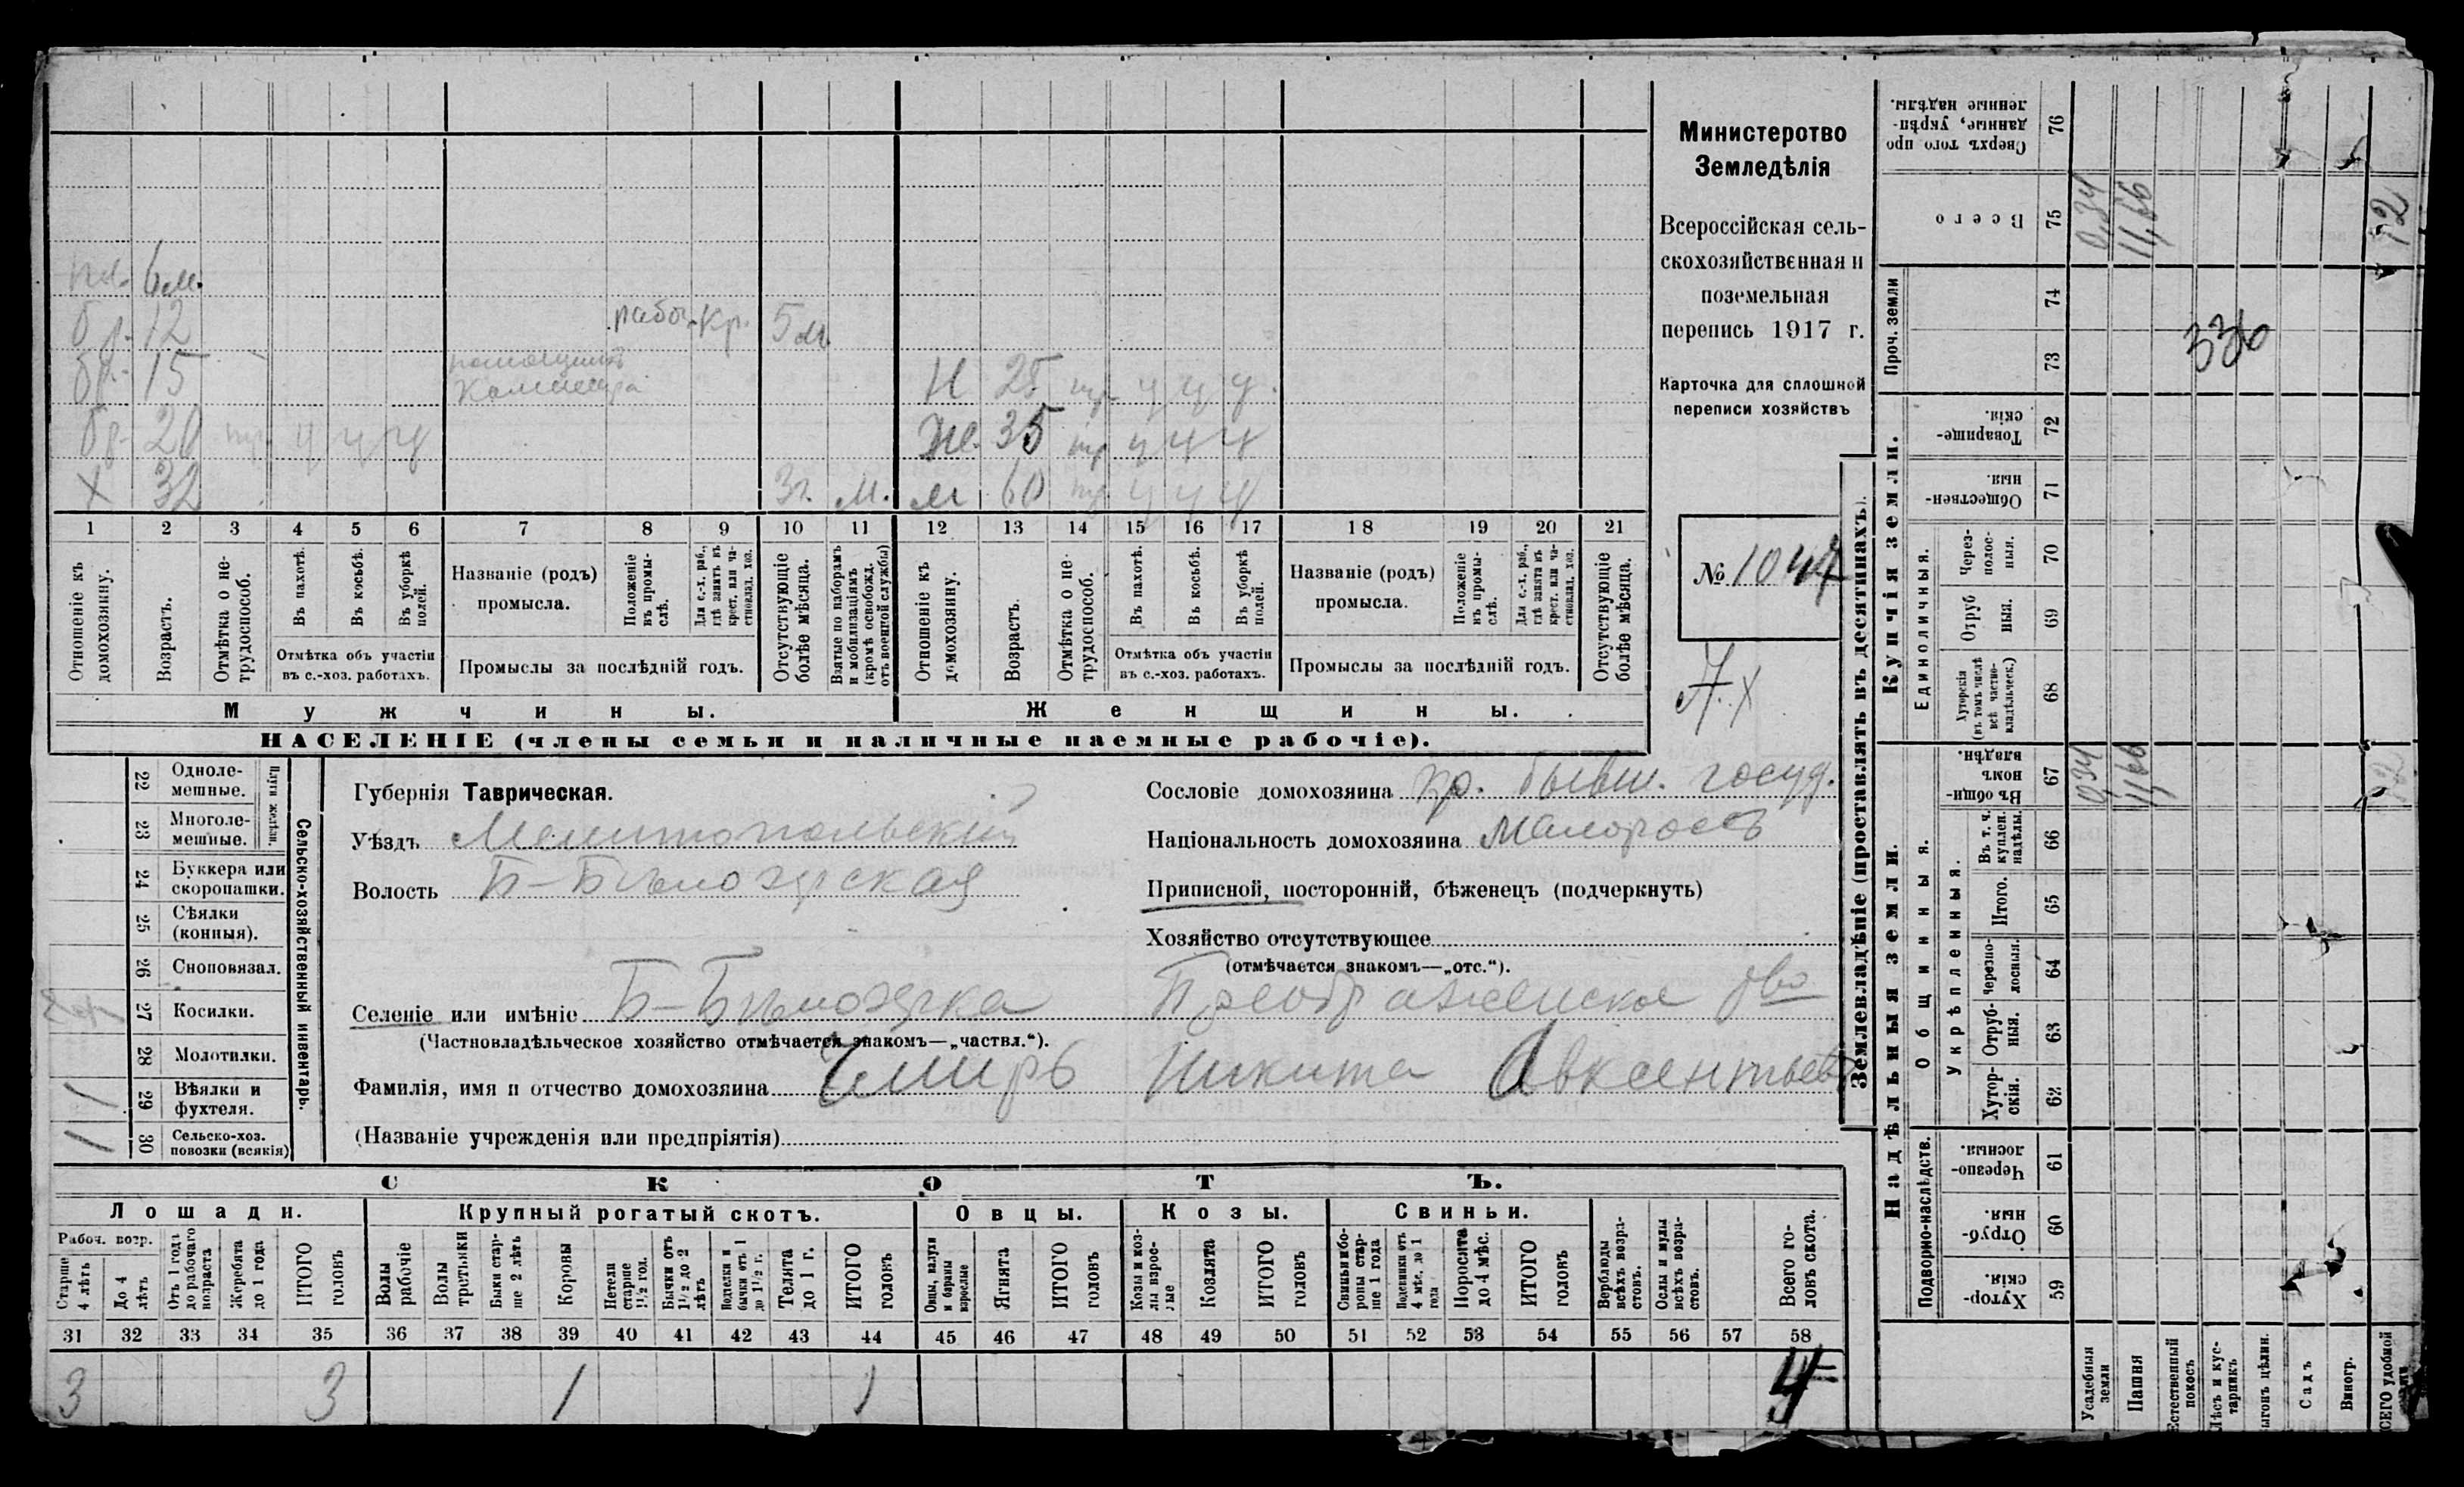 пл. 6 м.
бр. 12 рабоч. кр. 5 м.
бр. 15 помощникъ
Н 25 тр. ч ч ч
бр. 20 тр. ч ч ч
Ж. 35 тр ч ч ч
Х 32 3 г. м. м 60 тр. ч ч ч
1 2 3 4 5 6 7 8 9 10 11 12 13 14 15 16 17 18 19 20 21
Отношеніе къ домохозяину.
Возрастъ.
Отмѣтка о нетрудоспособ.
Въ пахотѣ.
Въ косьбѣ.
Въ уборкѣ полей.
Отмѣтка объ участіи въ с.-хоз. работахъ.
Названіе (родъ) промысла.
Положеніе въ промыслѣ.
Для с.-х. раб., гдѣ занятъ въ крест. или частновлад. хоз.
Промыслы за послѣдній годъ.
Отсутствующіе болѣе мѣсяца.
Взятые по наборамъ и мобилизаціямъ (кромѣ освобожд. отъ военной службы)
Отношеніе къ домохозяину.
Возрастъ.
Отмѣтка о нетрудоспособ.
Въ пахотѣ.
Въ косьбѣ.
Въ уборкѣ полей.
Отмѣтка объ участіи въ с.-хоз. работахъ.
Названіе (родъ) промысла.
Положеніе въ промыслѣ.
Для с.-х. раб., гдѣ занята въ крест. или частновлад. хоз.
Промыслы за послѣдній годъ.
Отсутствующіе болѣе мѣсяца.
Мужчины.
Женщины.
НАСЕЛЕНІЕ (члены семьи и наличные наемные рабочіе).
Министерство
Земледѣлія
Всероссійская сель-
скохозяйственная и
поземельная
перепись 1917 г.
Карточка для сплошной
переписи хозяйствъ
№ 1047
22 Одноле-
мешные.
23 Многоле-
мешные.
Плуги желѣзн.
24 Буккера или
скоропашки.
25 Сѣялки
(конныя).
26 Сноповязал.
27 Косилки.
28 Молотилки.
29 Вѣялки и
фухтеля.
1
30 Сельско-хоз.
повозки (всякія)
1
Сельско-хозяйственный инвентарь.
Губернія Таврическая.
Уѣздъ Мелитопольскій
Волость Б-Бѣлозерская
Сословіе домохозяина кр. бывш. госуд.
Національность домохозяина малороссъ
Приписной, посторонній, бѣженецъ (подчеркнуть)
Хозяйство отсутствующее
(отмѣчается знакомъ—„отс.“).
Селеніе или имѣніе Б-Бѣлозерка Преображенское о-во
(Частновладѣльческое хозяйство отмѣчается знакомъ—„частвл.“).
Фамилія, имя и отчество домохозяина Чмирь Никита Авксентьев
(Названіе учрежденія или предпріятія)
СКОТЪ.
Лошади. Крупный рогатый скотъ. Овцы. Козы. Свиньи.
Рабоч. возр.
Старше 4 лѣтъ
До 4 лѣтъ
Отъ 1 года до рабочаго возраста
Жеребята до 1 года
ИТОГО головъ
Волы рабочіе
Волы третьяки
Быки старше 2 лѣтъ
Коровы
Нетели старше 1½ год.
Бычки отъ 1½ до 2 лѣтъ
Подтелки и бычки отъ 1 до 1½ г.
Телята до 1 г.
ИТОГО головъ
Овцы, валухи и бараны взрослые
Ягнята
ИТОГО головъ
Козы и козлы взрослые
Козлята
ИТОГО головъ
Свиньи и боровы старше 1 года
Подсвинки отъ 4 мѣс. до 1 года
Поросята до 4 мѣс.
ИТОГО головъ
Верблюды всѣхъ возрастовъ.
Ослы и мулы всѣхъ возрастовъ.
Всего головъ скота.
31 32 33 34 35 36 37 38 39 40 41 42 43 44 45 46 47 48 49 50 51 52 53 54 55 56 57 58
3 3 1 1 4
Землевладѣніе (проставлять въ десятинахъ).
Надѣльныя земли.
Подворно-наслѣдств.
Хуторскія. 59
Отрубныя. 60
Черезполосныя. 61
Общинныя.
Укрѣпленныя.
Хуторскія. 62
Отрубныя. 63
Черезполосныя. 64
Итого. 65
Въ т. ч. куплен. надѣлы. 66
Въ общинномъ владѣн. 67
0,34
11,66
12
Купчія земли.
Единоличныя.
Хуторскія (въ томъ числѣ всѣ частновладѣльческ.) 68
Отрубныя. 69
Черезполосныя. 70
Общественныя. 71
Товарищескія. 72
Проч. земли
73
74
336
Всего 75
0,34
11,66
12
Сверхъ того проданные, укрѣпленные надѣлы. 76
Усадебныя земли
Пашня
Естественный покосъ
Лѣсъ и кустарникъ
ыгонъ цѣлин.
Садъ
Виногр.
СЕГО удобной